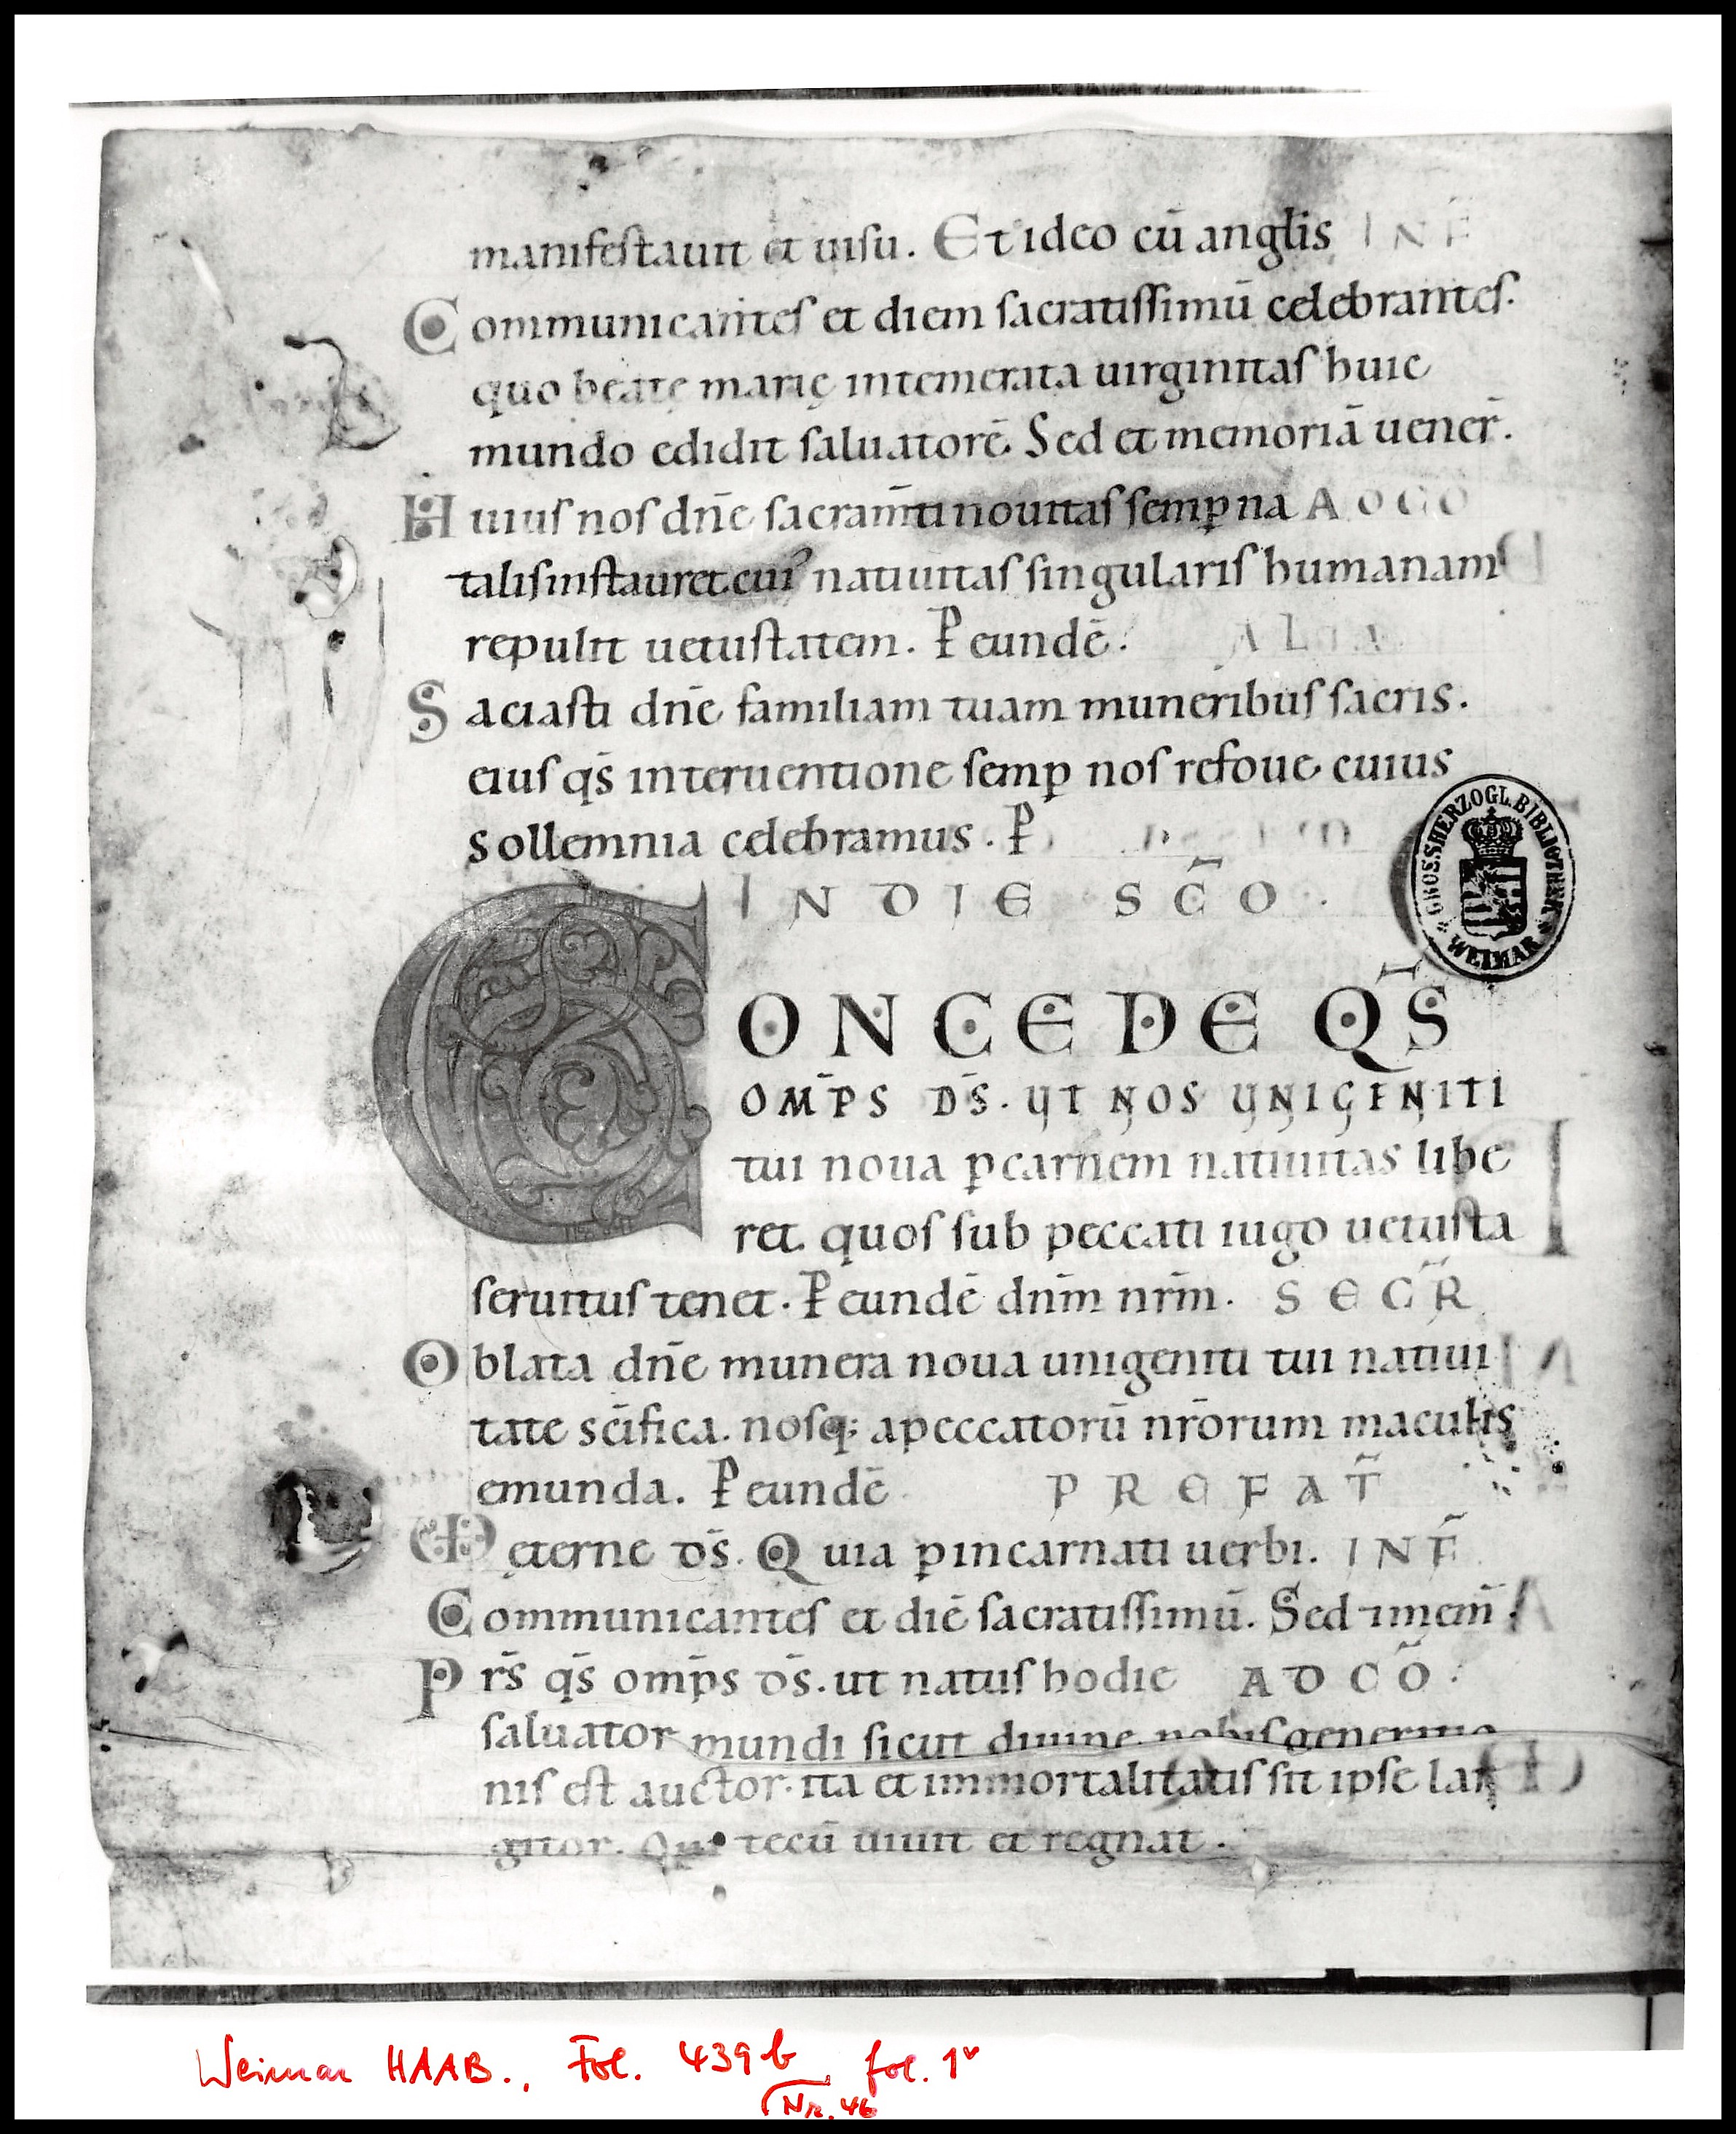 manifestauit et uisu. Et ideo cū anglis INF̄
Communicantes et diem sacratissimū celebrantes.
quo beatę marię intemerata uirginitas huic
mundo edidit saluatorē. Sed et memoriā uener̄.
Huius nos dn̄e sacram̄ti nouitas semp̲ na ADCO
talis instauret. cuiꝰ natiuitas singularis humanam
repulit uetustatem. P̲ eundē. ALIA
Saciasti dn̄e familiam tuam muneribus sacris.
eius qs̄ interuentione semꝑ nos refoue cuius
sollemnia celebramus. P̲
IN DIE SC̄O.
GROSSHERZOGL. BIBLIOTHEK
WEIMAR
CONCEDE QS̄
OMP̄S DS̄. UT NOS UNIGENITI
tui noua ꝑ carnem natiuitas libe
ret. quos sub peccati iugo uetusta
seruitus tenet. P̲ eundē dn̄m nr̄m. SECR̄
Oblata dn̄e munera noua unigeniti tui natiui
tate sc̄ifica. nosq; a peccatorū nr̄orum maculis
emunda. P̲ eundē PREFAT̄
ęterne ds̄. Quia ꝑ incarnati uerbi. INF̄
Communicantes et diē sacratissimū. Sed ⁊ mem̄
Pr̄s qs̄ omp̄s ds̄. ut natus hodie AD CŌ.
saluator mundi sicut diuine nobis generatio
nis est auctor. ita et immortalitatis sit ipse lar
gitor. Qui tecū uiuit et regnat.
Weimar HAAB., Fol. 439b, fol. 1v
Nr. 46